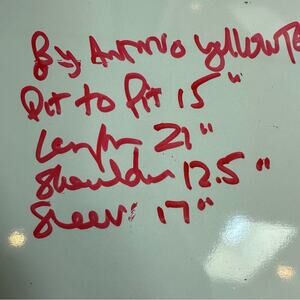 By Antonio yellow
Pit to Pit 15"
Length 21"
Shoulder 12.5"
Sleeve 17"